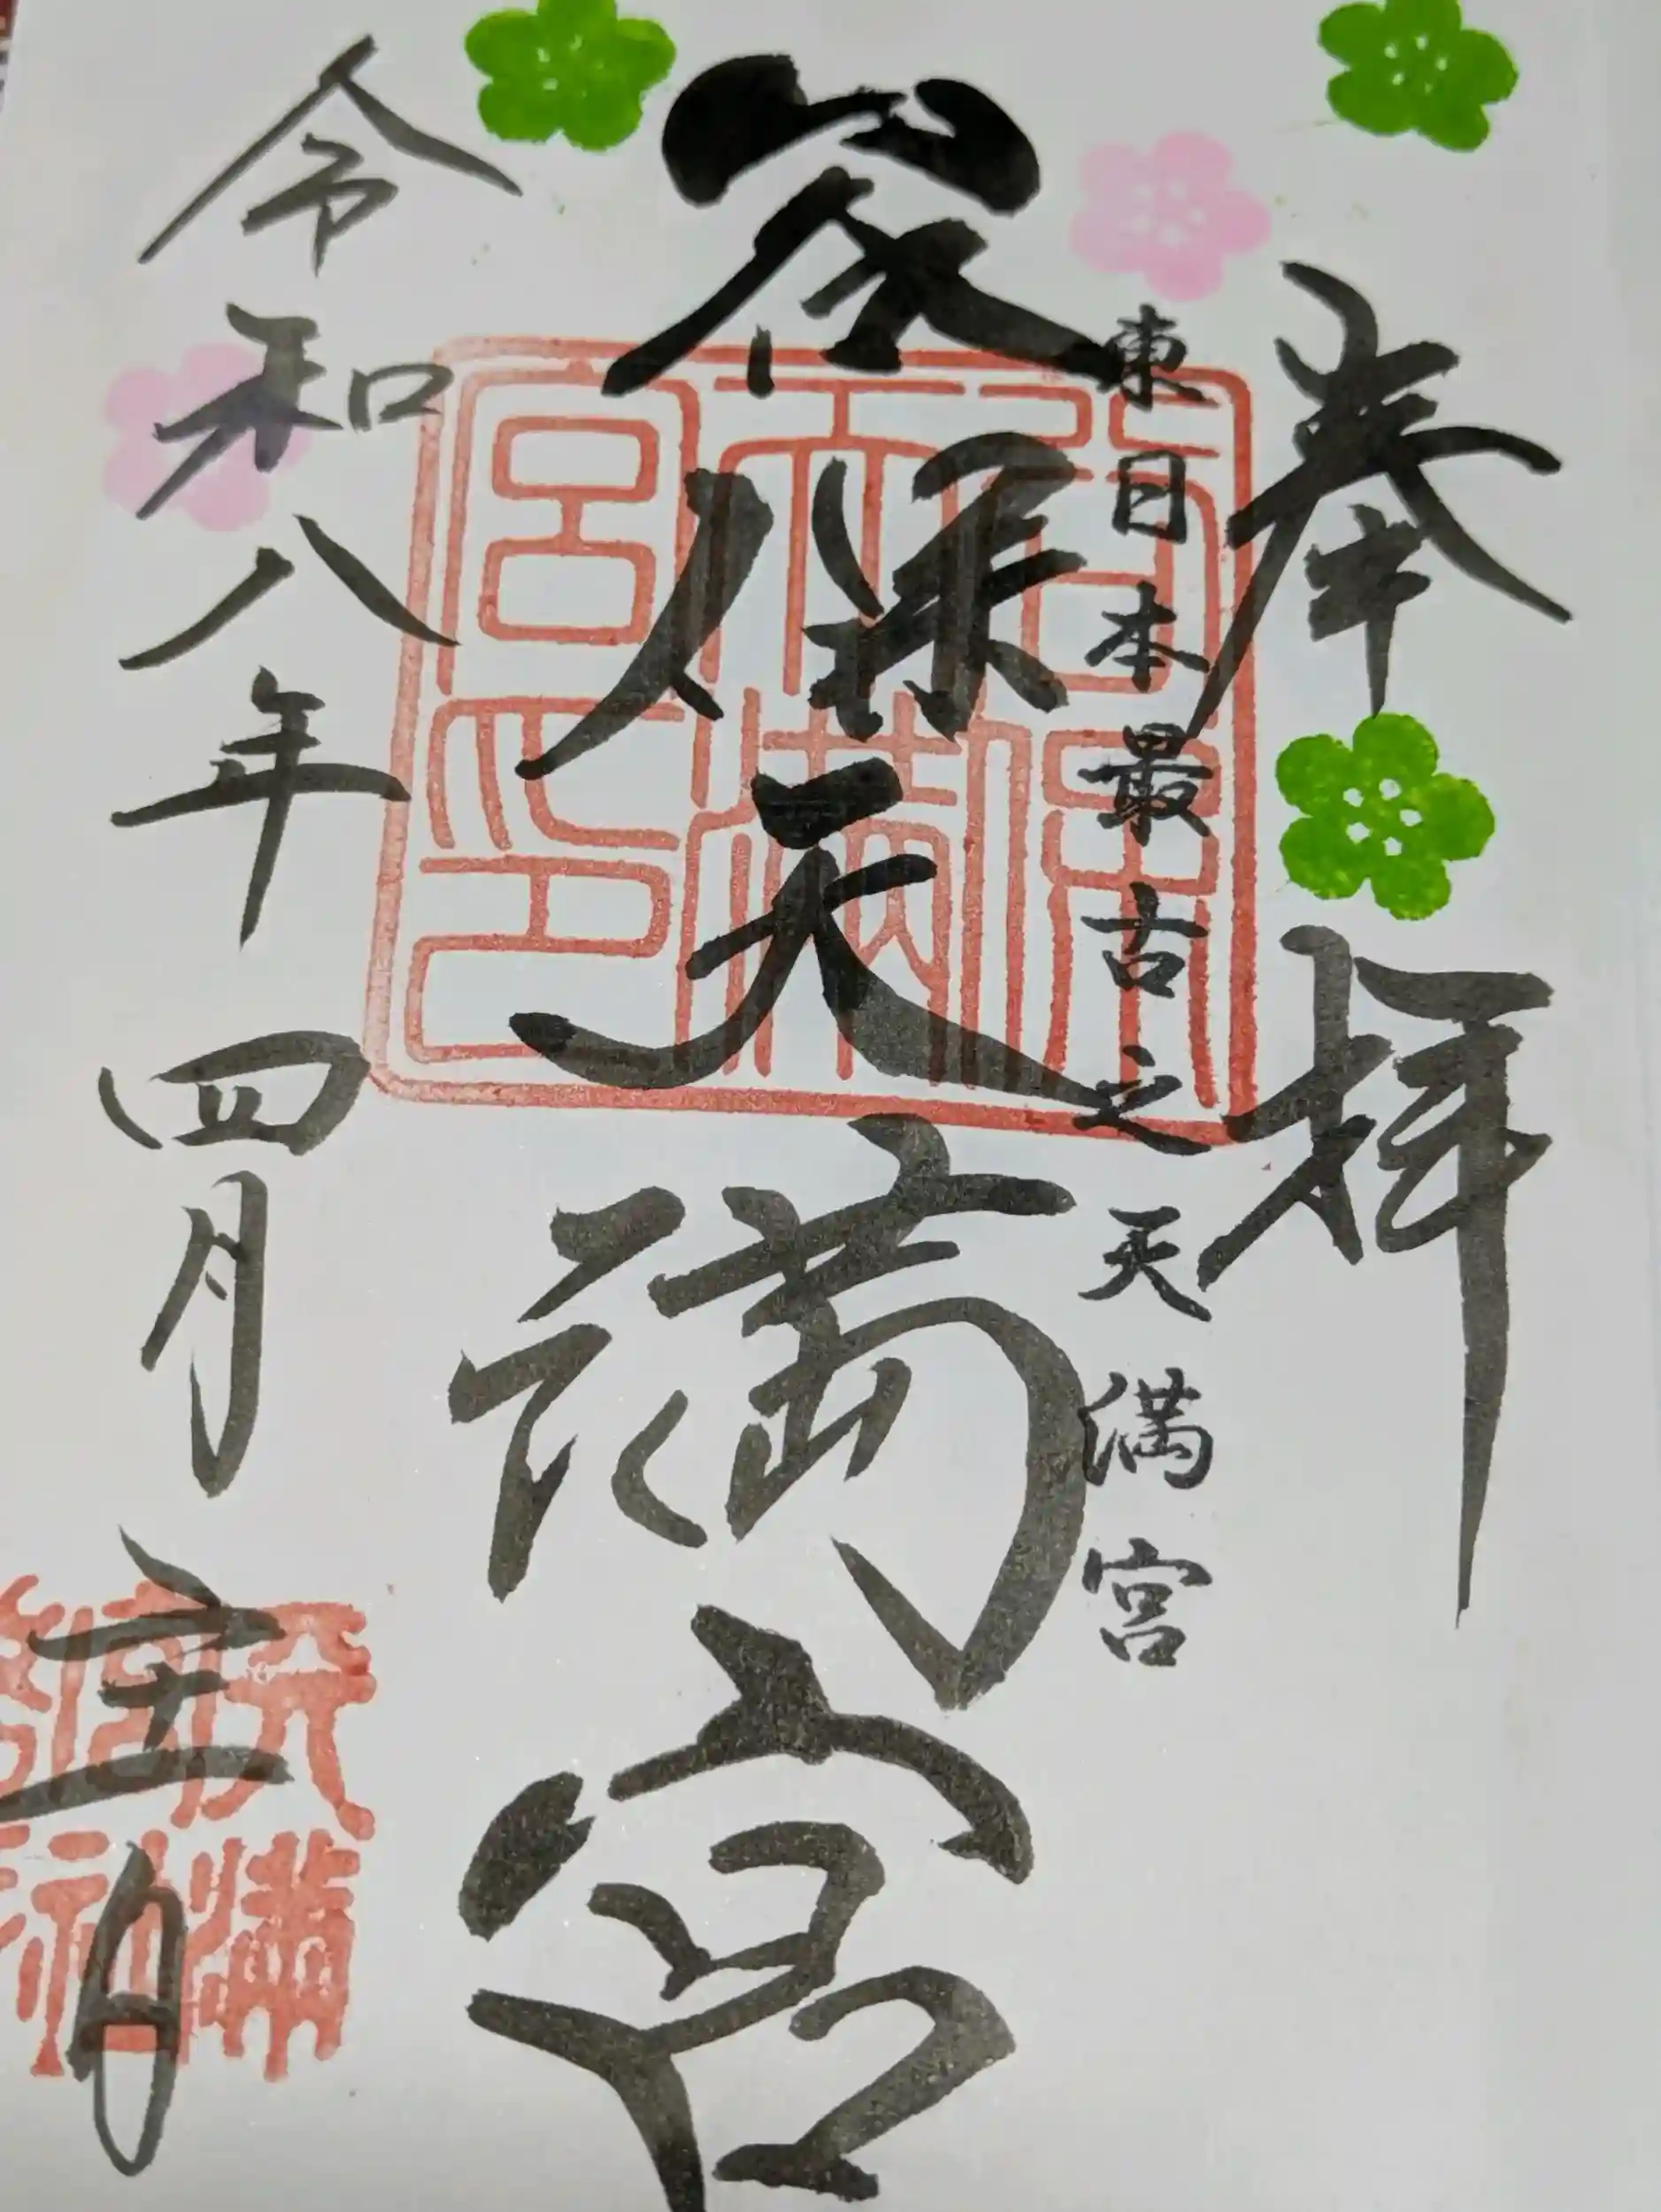 奉拝
東日本最古之天満宮
谷保天満宮
谷保天満宮印
令和八年四月